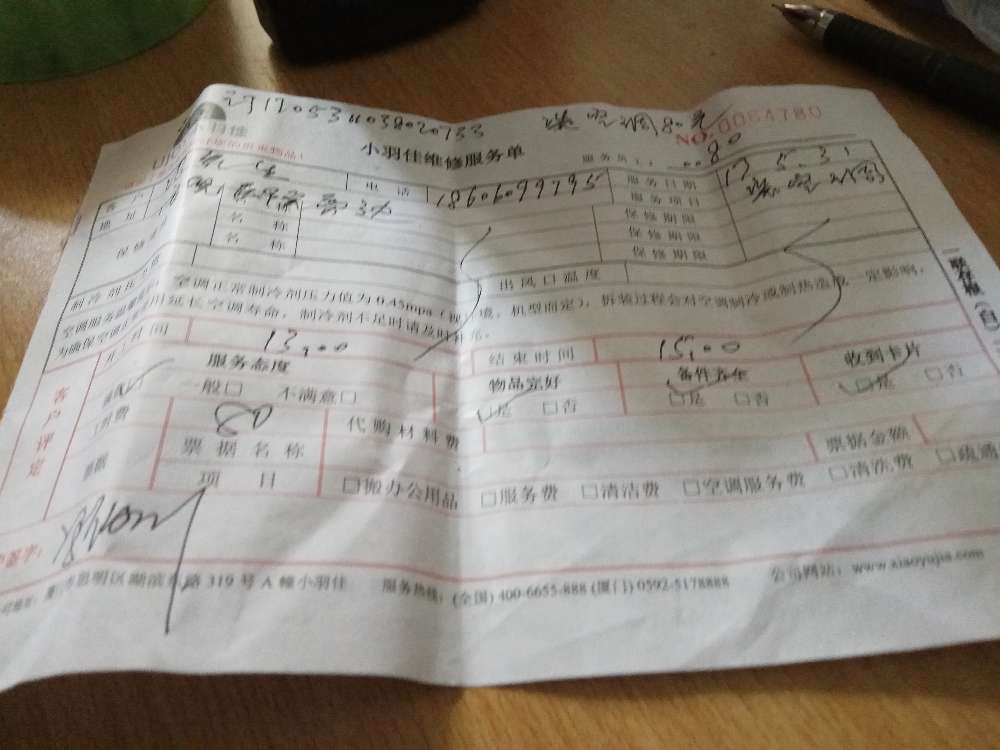 洗空调80元
NO:0064780
小羽佳
小羽佳维修服务单
服务员工: 80
客户 电话 18606099795 服务日期 17.5.31
地址 服务项目 洗空调
名称 保修期限
名称 保修期限
保修期限
制冷剂压力值 出风口温度
空调正常制冷剂压力值为0.45mpa(视环境,机型而定),拆装过程会对空调制冷或制热造成一定影响,
为确保空调正常使用延长空调寿命,制冷剂不足时请及时补充。
开工时间 13:00 结束时间 15:00
客户评定
服务态度 物品完好 备件齐全 收到卡片
一般□ 不满意□ □是 □否 □是 □否 □是 □否
工时费 80 代购材料费
票据 票据名称 票据金额
项目 □搬办公用品 □服务费 □清洁费 □空调服务费 □清洗费 □疏通
签字:
思明区湖滨东路319号A幢小羽佳 服务热线:(全国)400-6655-888(厦门)0592-5178888 公司网站:www.xiaoyujia.com